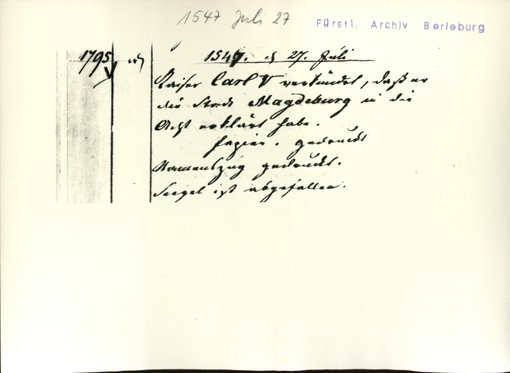 1547 Juli 27
Fürstl. Archiv Berleburg
1795
1547. d 27. Juli
Kaiser Carl V verkündet, daß er
die Stadt Magdeburg in die
Acht erklärt habe.
Papier. gedruckt
Namenszug gedruckt.
Siegel ist abgefallen.